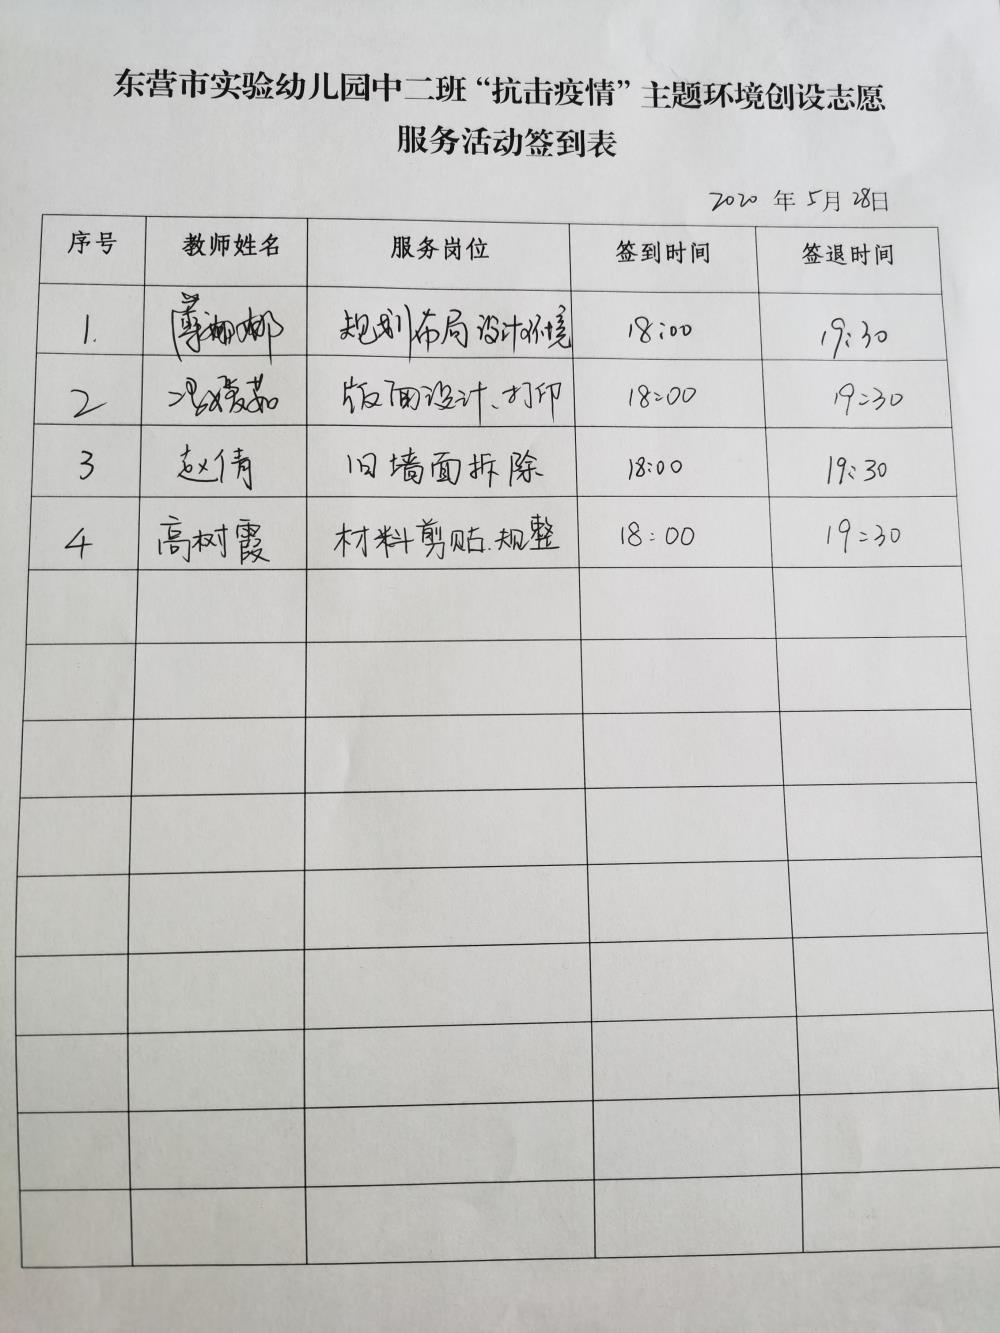 东营市实验幼儿园中二班“抗击疫情”主题环境创设志愿
服务活动签到表
2020 年 5月 28日
序号 教师姓名 服务岗位 签到时间 签退时间
1. 规划布局设计环境 18:00 19:30
2 版面设计、打印 18:00 19:30
3 赵倩 旧墙面拆除 18:00 19:30
4 高树霞 材料剪贴.规整 18:00 19:30